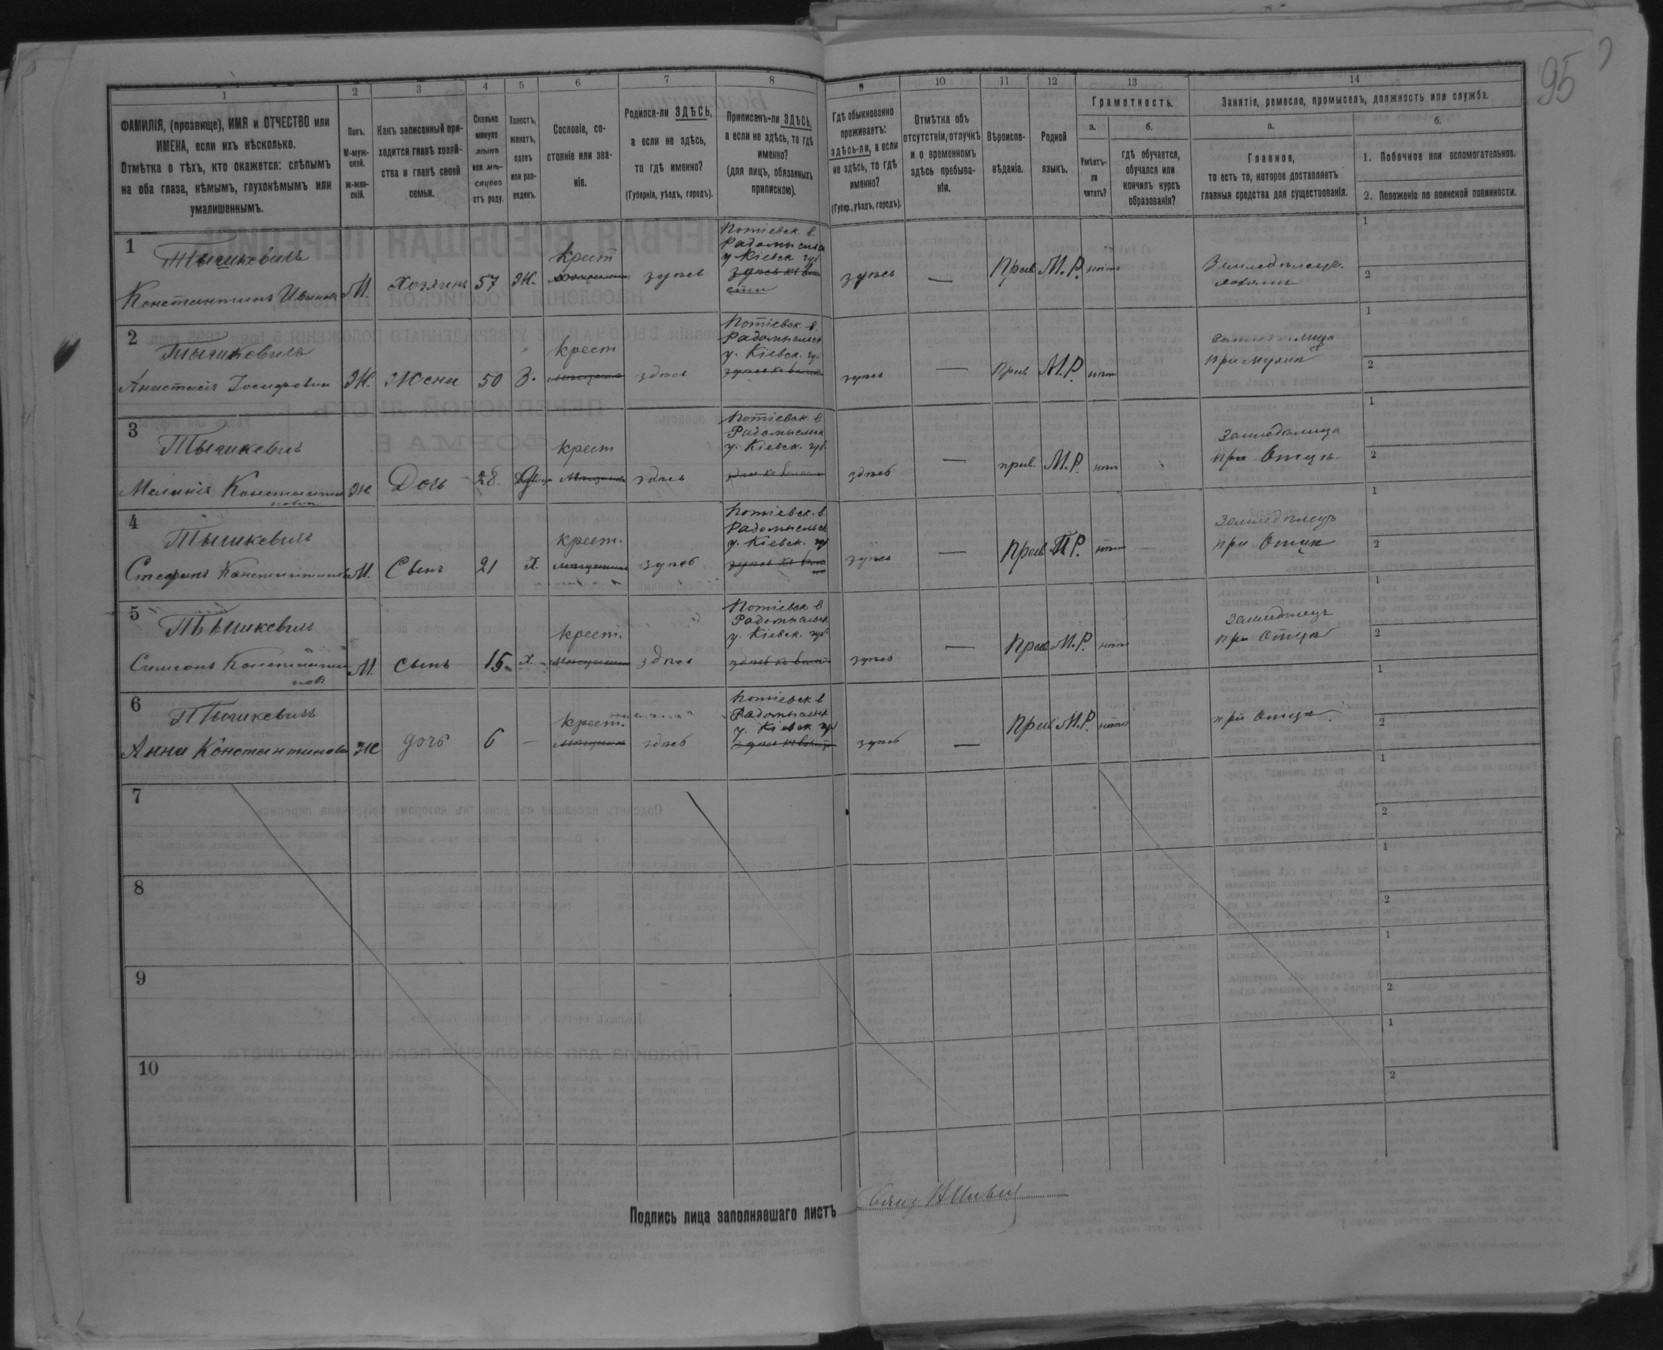 95
1 2 3 4 5 6 7 8 9 10 11 12 13 14
ФАМИЛІЯ, (прозвище), ИМЯ и ОТЧЕСТВО или
ИМЕНА, если ихъ нѣсколько.
Отмѣтка о тѣхъ, кто окажется: слѣпымъ
на оба глаза, нѣмымъ, глухонѣмымъ или
умалишеннымъ.
Полъ.
М-муж-
ской.
ж-жен-
скій.
Какъ записанный при-
ходится главѣ хозяй-
ства и главѣ своей
семьи.
Сколько
минуло
лѣтъ
или мѣ-
сяцевъ
отъ роду.
Холостъ,
женатъ,
вдовъ
или раз-
веденъ.
Сословіе, со-
стояніе или зва-
ніе.
Родился-ли ЗДѢСЬ,
а если не здѣсь,
то гдѣ именно?
(Губернія, уѣздъ, городъ).
Приписанъ-ли ЗДѢСЬ,
а если не здѣсь, то гдѣ
именно?
(для лицъ, обязанныхъ
припискою).
Гдѣ обыкновенно
проживаетъ:
здѣсь-ли, а если
не здѣсь, то гдѣ
именно?
(Губер., уѣздъ, городъ).
Отмѣтка объ
отсутствіи, отлучкѣ
и о временномъ
здѣсь пребыва-
ніи.
Вѣроиспо-
вѣданіе.
Родной
языкъ.
Грамотность.
а.
Умѣетъ-
ли
читать?
б.
гдѣ обучается,
обучался или
кончилъ курсъ
образованія?
Занятіе, ремесло, промыселъ, должность или служба.
а.
Главное,
то есть то, которое доставляетъ
главныя средства для существованія.
б.
1. Побочное или вспомогательное.
2. Положеніе по воинской повинности.
1
Тышкевичъ
Константинъ Иванов
М. Хозяинъ 57 Ж. крест здѣсь
Потіевск. в
Радомысльск
у Кіевск. губ
здѣсь — Прав М.Р. нѣтъ
Земледѣлецъ
хозяинъ
1
2
2
Тышкевичъ
Анастасія Іосифовна
Ж. Жена 50 З. крест здѣсь
Потіевск. в
Радомысльск
у. Кіевск. гу.
здѣсь — Прав М.Р. нѣтъ
при мужѣ
1
2
3
Тышкевичъ
Меланія Константи
новна
Ж Дочь 28 крест здѣсь
Потіевск. в
Радомысльск
у. Кіевск. губ
здѣсь — прав. М.Р. нѣтъ
Земледѣлица
при Отцѣ
1
2
4
Тышкевичъ
Стефанъ Константинов
М. Сынъ 21 Х. крест. здѣсь
Потіевск. в
Радомысльск
у. Кіевск. гу
здѣсь — Прав М.Р. нѣтъ
Земледѣлецъ
при Отцѣ
1
2
5
Тышкевичъ
Симеонъ Константи
нов.
М. сынъ 15 Х. крест. здѣсь
Потіевск. в
Радомысльск
у. Кіевск. губ
здѣсь — Прав М.Р. нѣтъ
Земледѣлецъ
при Отцѣ
1
2
6
Тышкевичъ
Анна Константинова
Ж дочь 6 — крест. здѣсь
Потіевск в
Радомысльск
у. Кіевск гу
здѣсь — Прав М.Р. нѣтъ
при Отцѣ
1
2
7
1
2
8
1
2
9
1
2
10
1
2
Подпись лица заполнявшаго листъ